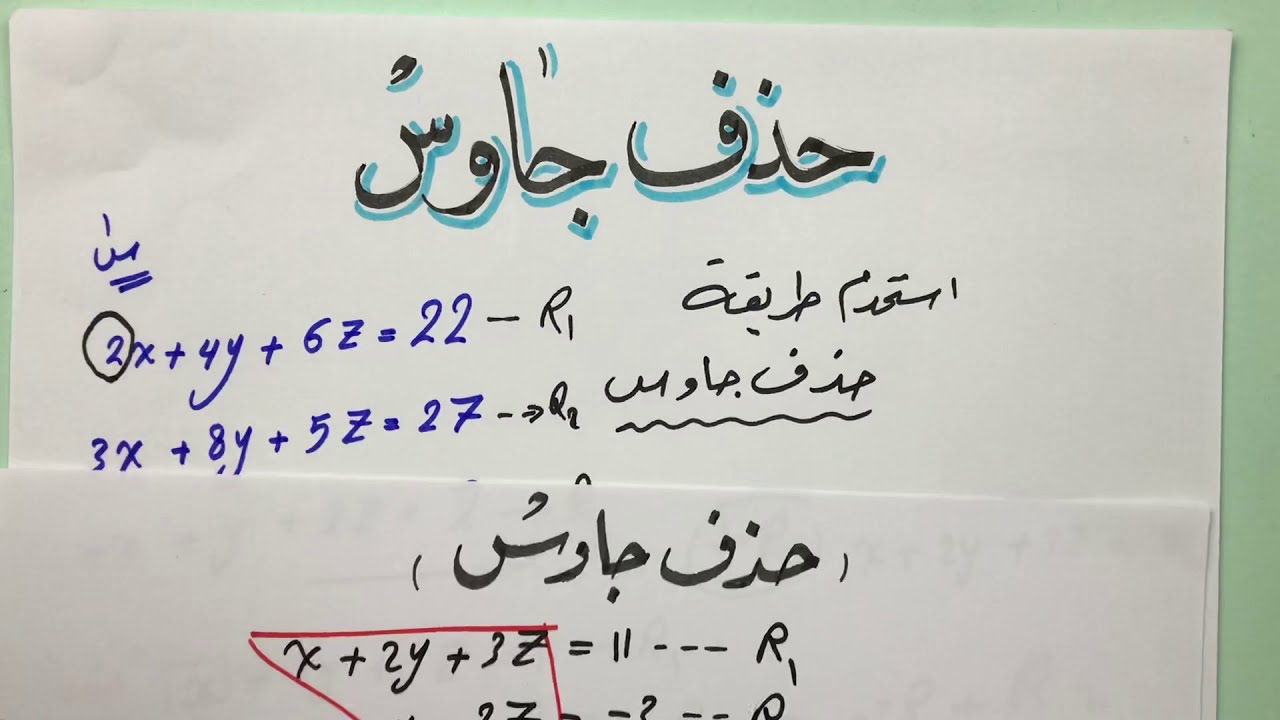 حذف جاوس
س١
استخدم طريقة
حذف جاوس
2x + 4y + 6z = 22 — R₁
3x + 8y + 5z = 27 → R₂
(حذف جاوس)
x + 2y + 3z = 11 --- R₁
= -3 -- R